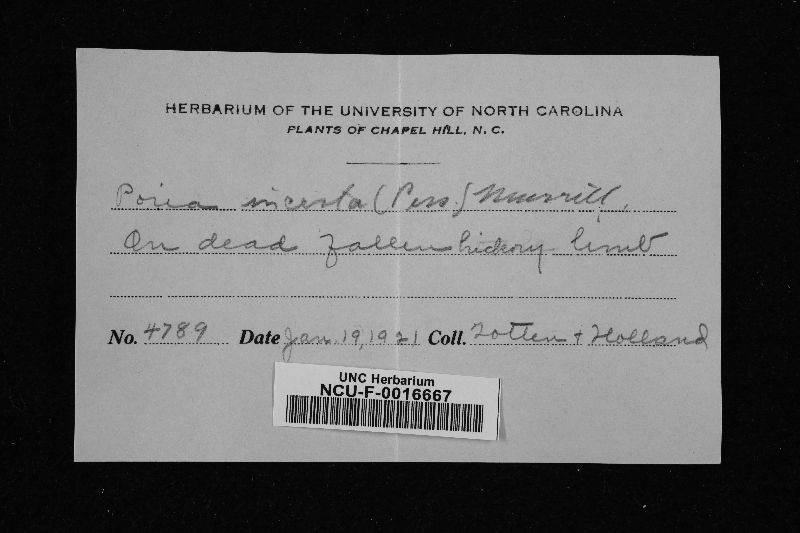 HERBARIUM OF THE UNIVERSITY OF NORTH CAROLINA
PLANTS OF CHAPEL HILL, N. C.
Poria incerta (Pers.) Murrill.
On dead fallen hickory limb
No. 4789 Date Jan. 19, 1921 Coll. Totten + Holland
UNC Herbarium
NCU-F-0016667